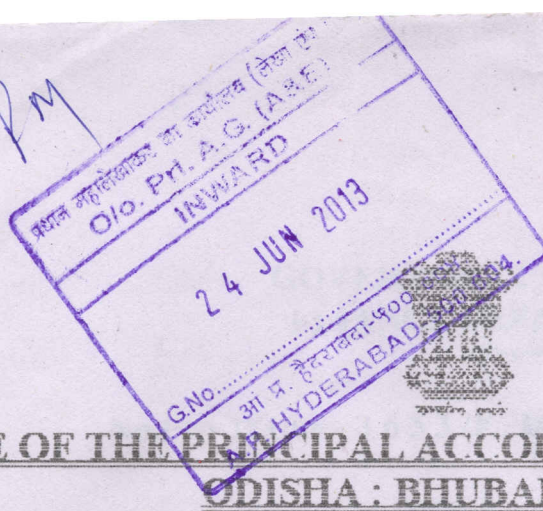 प्रधान महालेखाकार का कार्यालय (लेखा एवं
O/o. Prl. A.G. (A&E)
INWARD
24 JUN 2013
G.No.
आं प्र. हैदराबाद-५००
A.P. HYDERABAD
E OF THE PRINCIPAL ACCOU
ODISHA : BHUBA